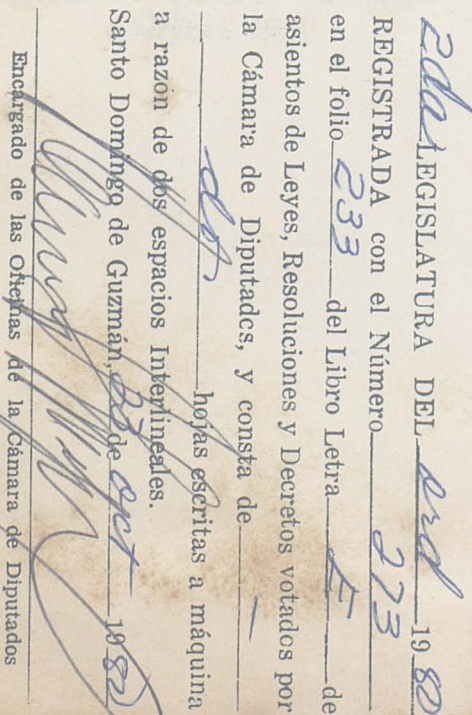 2da LEGISLATURA DEL ord 1980
REGISTRADA con el Número 273
en el folio 233 del Libro Letra E de
asientos de Leyes, Resoluciones y Decretos votados por
la Cámara de Diputados, y consta de —
dos hojas escritas a máquina
a razón de dos espacios Interlineales.
Santo Domingo de Guzmán, 23 de oct 1980
Encargado de las Oficinas de la Cámara de Diputados